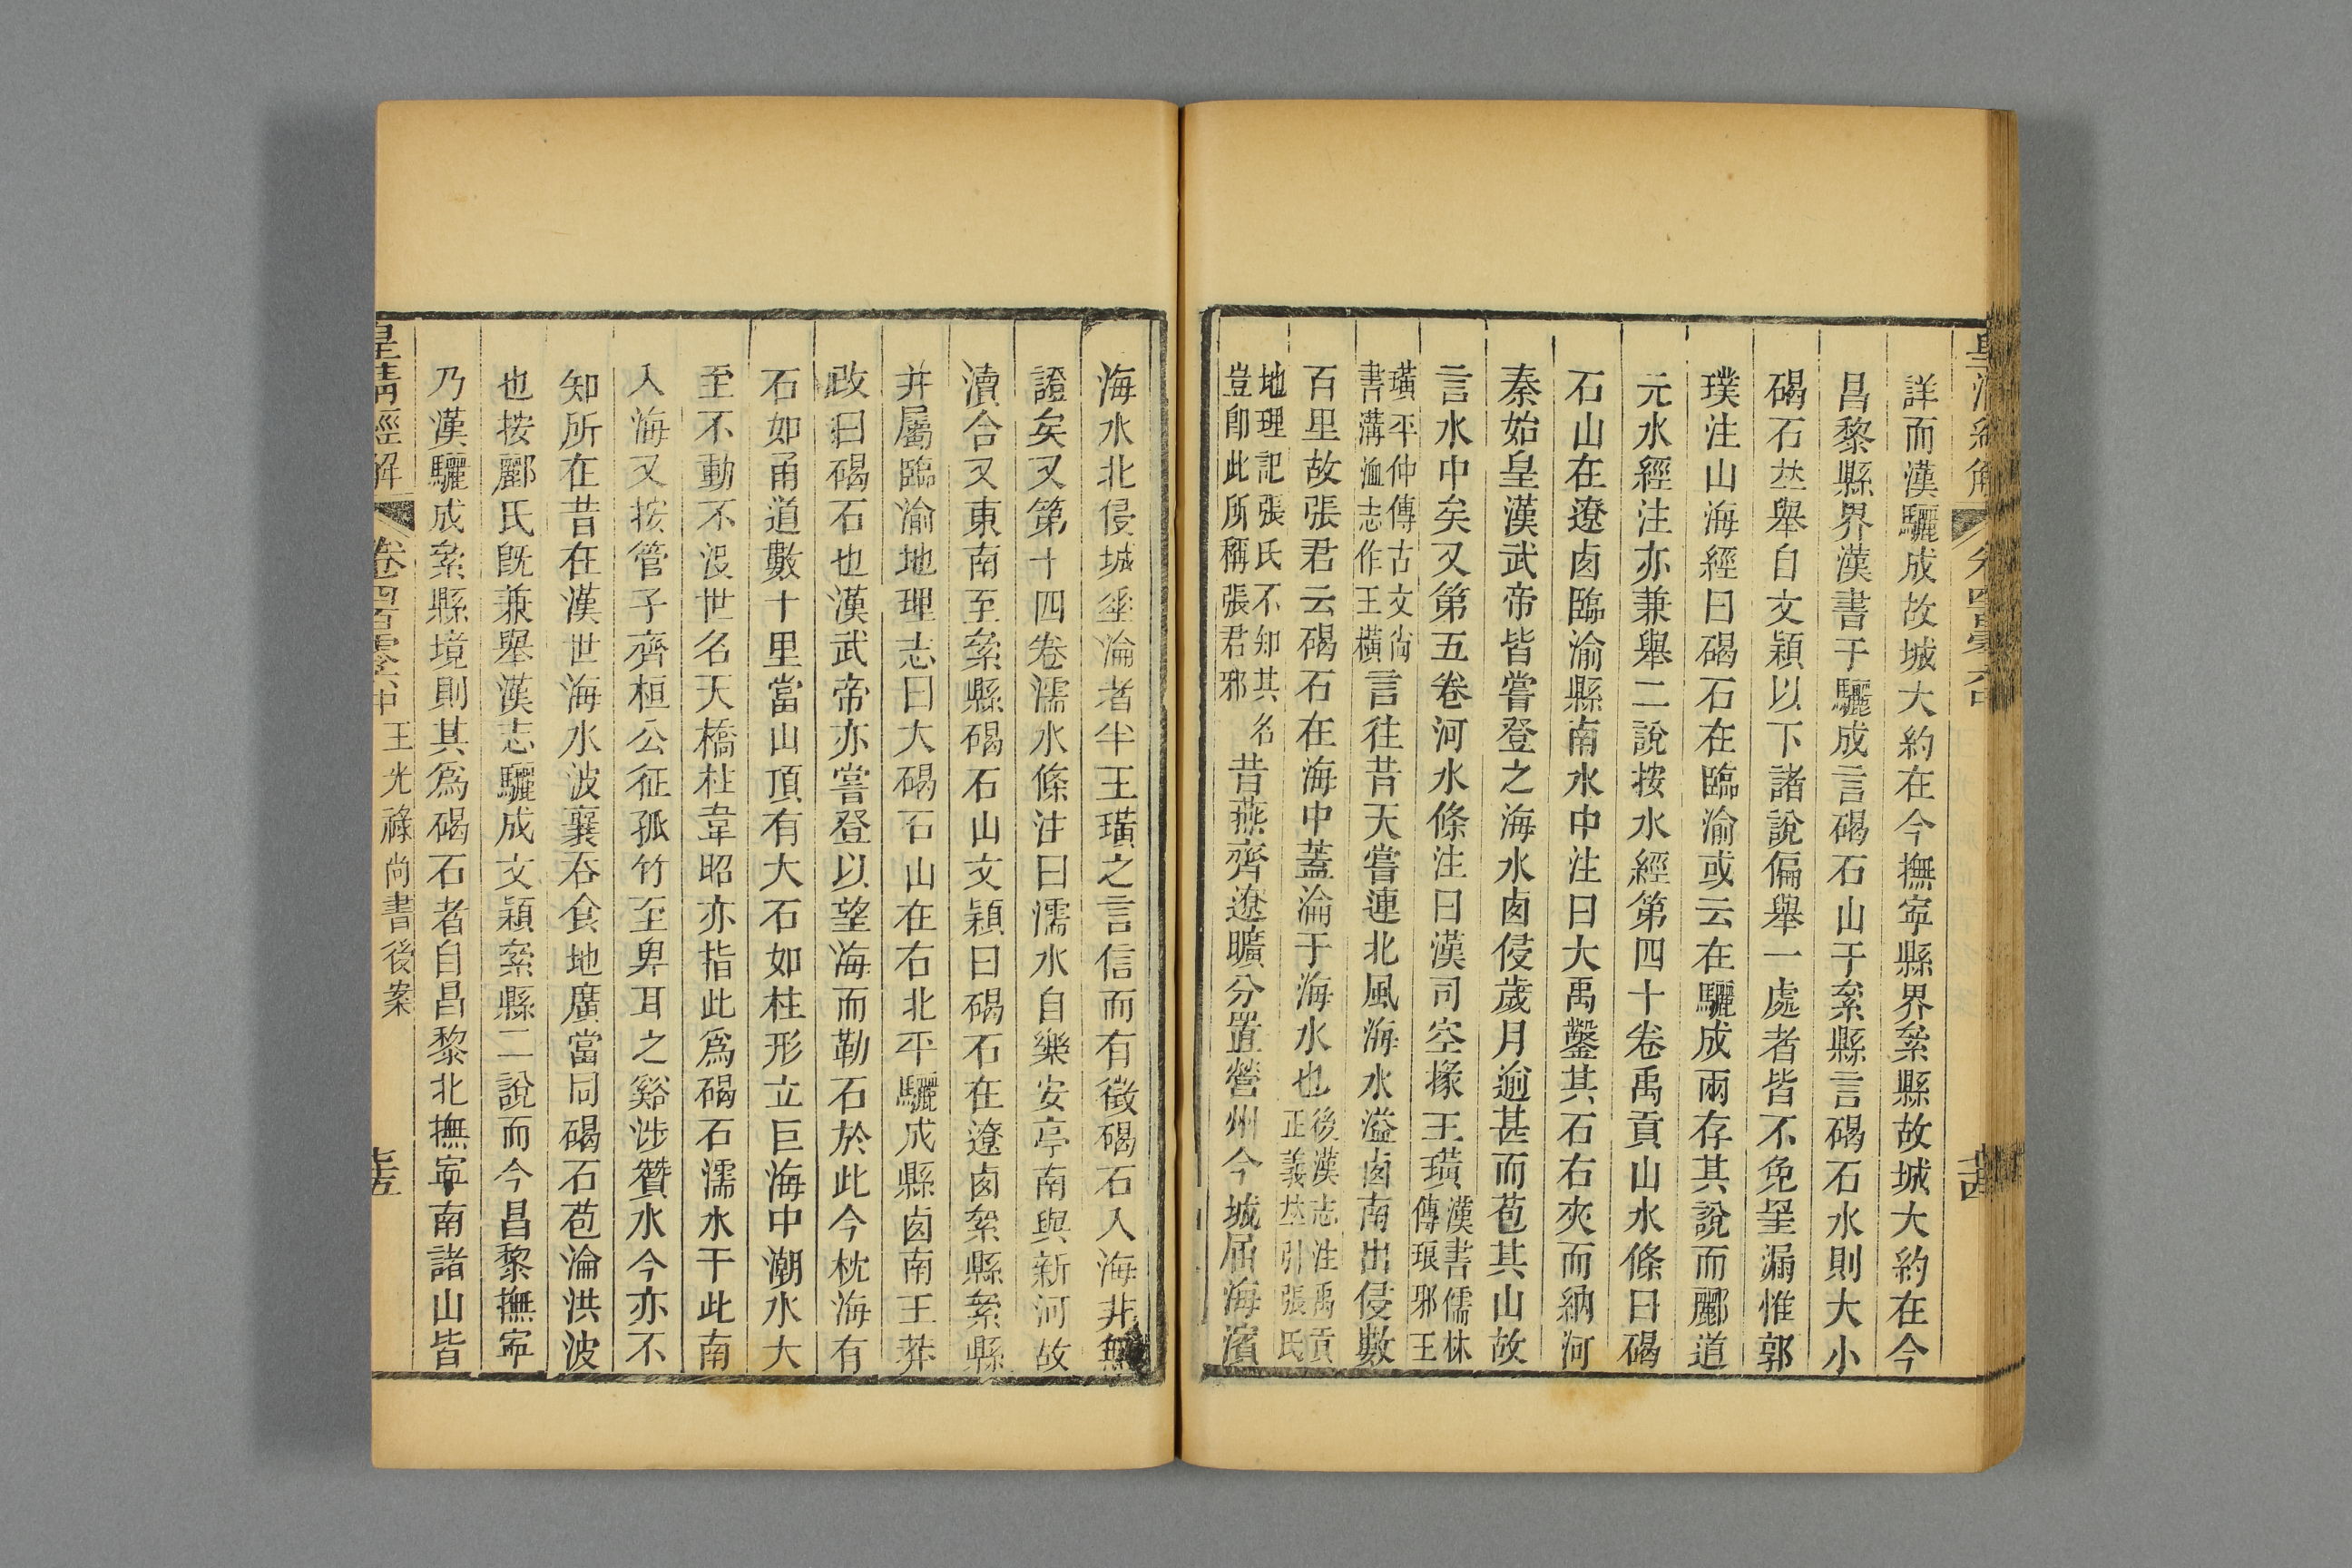 詳而漢驪成故城大約在今撫寧縣界絫縣故城大約在今
昌黎縣界漢書于驪成言碣石山于絫縣言碣石水則大小
碣石竝舉自文穎以下諸說偏舉一處者皆不免罣漏惟郭
璞注山海經曰碣石在臨渝或云在驪成兩存其說而酈道
元水經注亦兼舉二說按水經第四十卷禹貢山水條曰碣
石山在遼卤臨渝縣南水中注曰大禹鑿其石右夾而納河
秦始皇漢武帝皆嘗登之海水卤侵歲月逾甚而苞其山故
言水中矣又第五卷河水條注曰漢司空掾王璜漢書儒林傳琅邪王
璜平仲傳古文尚書溝洫志作王橫言往昔天嘗連北風海水溢卤南出侵數
百里故張君云碣石在海中蓋淪于海水也後漢志注禹貢正義竝引張氏
地理記張氏不知其名豈卽此所稱張君邪昔燕齊遼曠分置營州今城屆海濱
海水北侵城垂淪者半王璜之言信而有徵碣石入海非無
證矣又第十四卷濡水條注曰濡水自樂安亭南與新河故
瀆合又東南至絫縣碣石山文穎曰碣石在遼卤絫縣絫縣
并屬臨渝地理志曰大碣石山在右北平驪成縣卤南王莽
改曰碣石也漢武帝亦嘗登以望海而勒石於此今枕海有
石如甬道數十里當山頂有大石如柱形立巨海中潮水大
至不動不沒世名天橋柱韋昭亦指此爲碣石濡水于此南
入海又按管子齊桓公征孤竹至卑耳之谿涉贊水今亦不
知所在昔在漢世海水波襄吞食地廣當同碣石苞淪洪波
也按酈氏既兼舉漢志驪成文穎絫縣二說而今昌黎撫寧
乃漢驪成絫縣境則其爲碣石者自昌黎北撫寧南諸山皆
皇清經解 卷四百零六中 王光祿尚書後案 十五